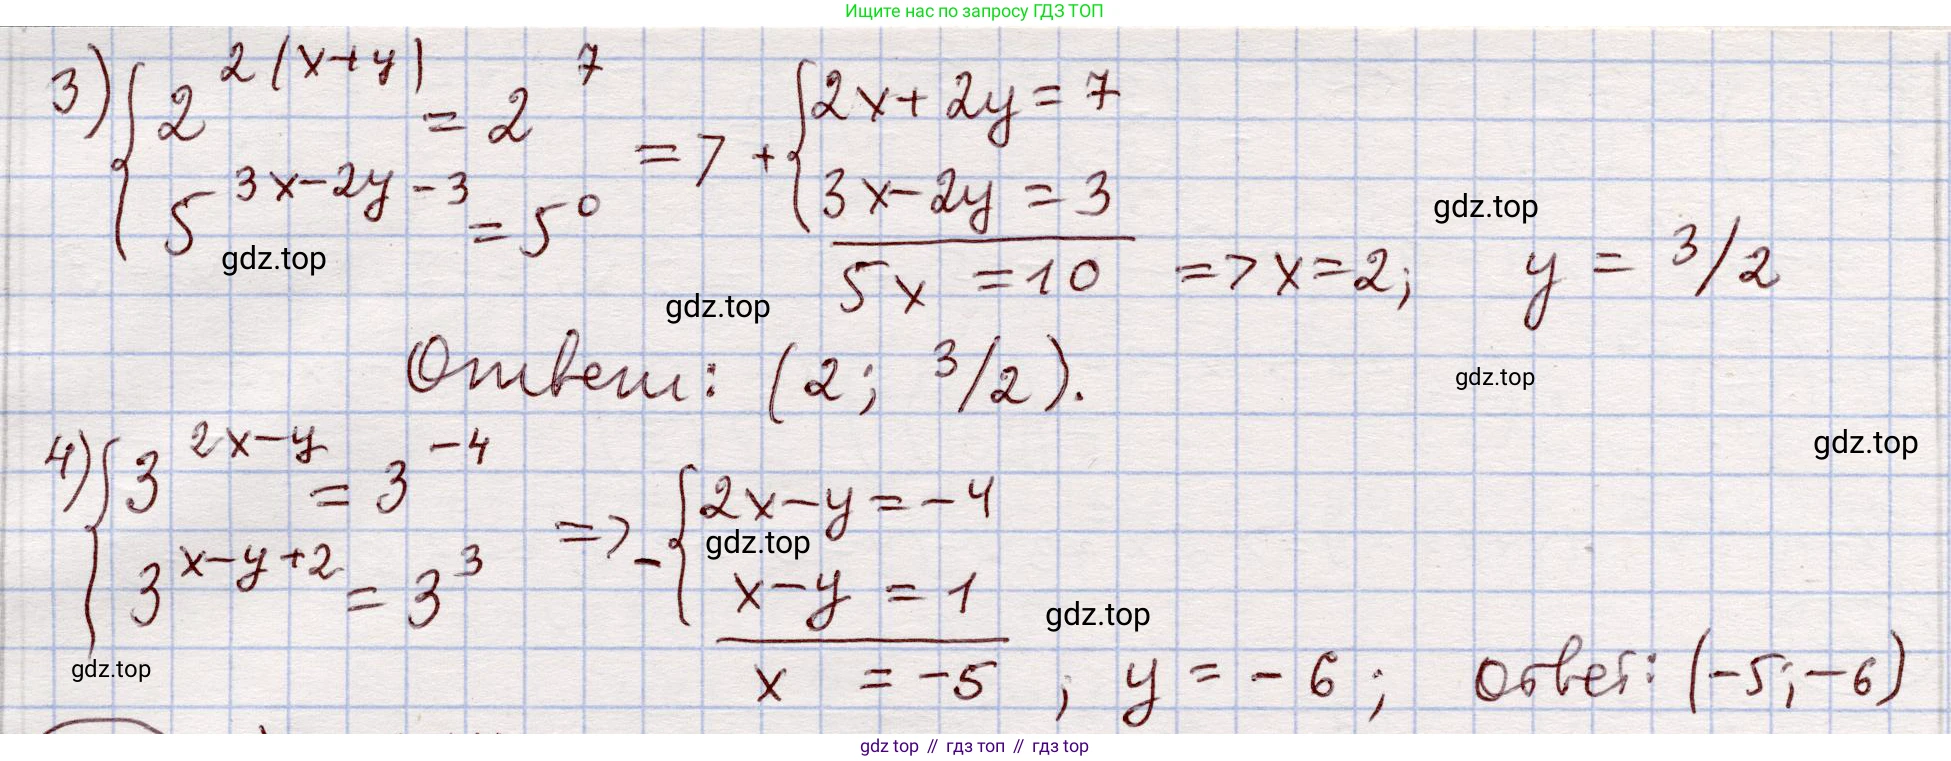 Ищите нас по запросу ГДЗ ТОП
3) { 2^{2(x+y)} = 2^7 => + { 2x+2y = 7
5^{3x-2y-3} = 5^0 3x-2y = 3
gdz.top
gdz.top
5x = 10 => x=2; y = 3/2
gdz.top
Ответ: (2; 3/2).
gdz.top
gdz.top
4) { 3^{2x-y} = 3^{-4} => - { 2x-y = -4
gdz.top
3^{x-y+2} = 3^3 x-y = 1
gdz.top
gdz.top
x = -5 ; y = -6 ; Ответ: (-5; -6)
gdz top // гдз топ // гдз top